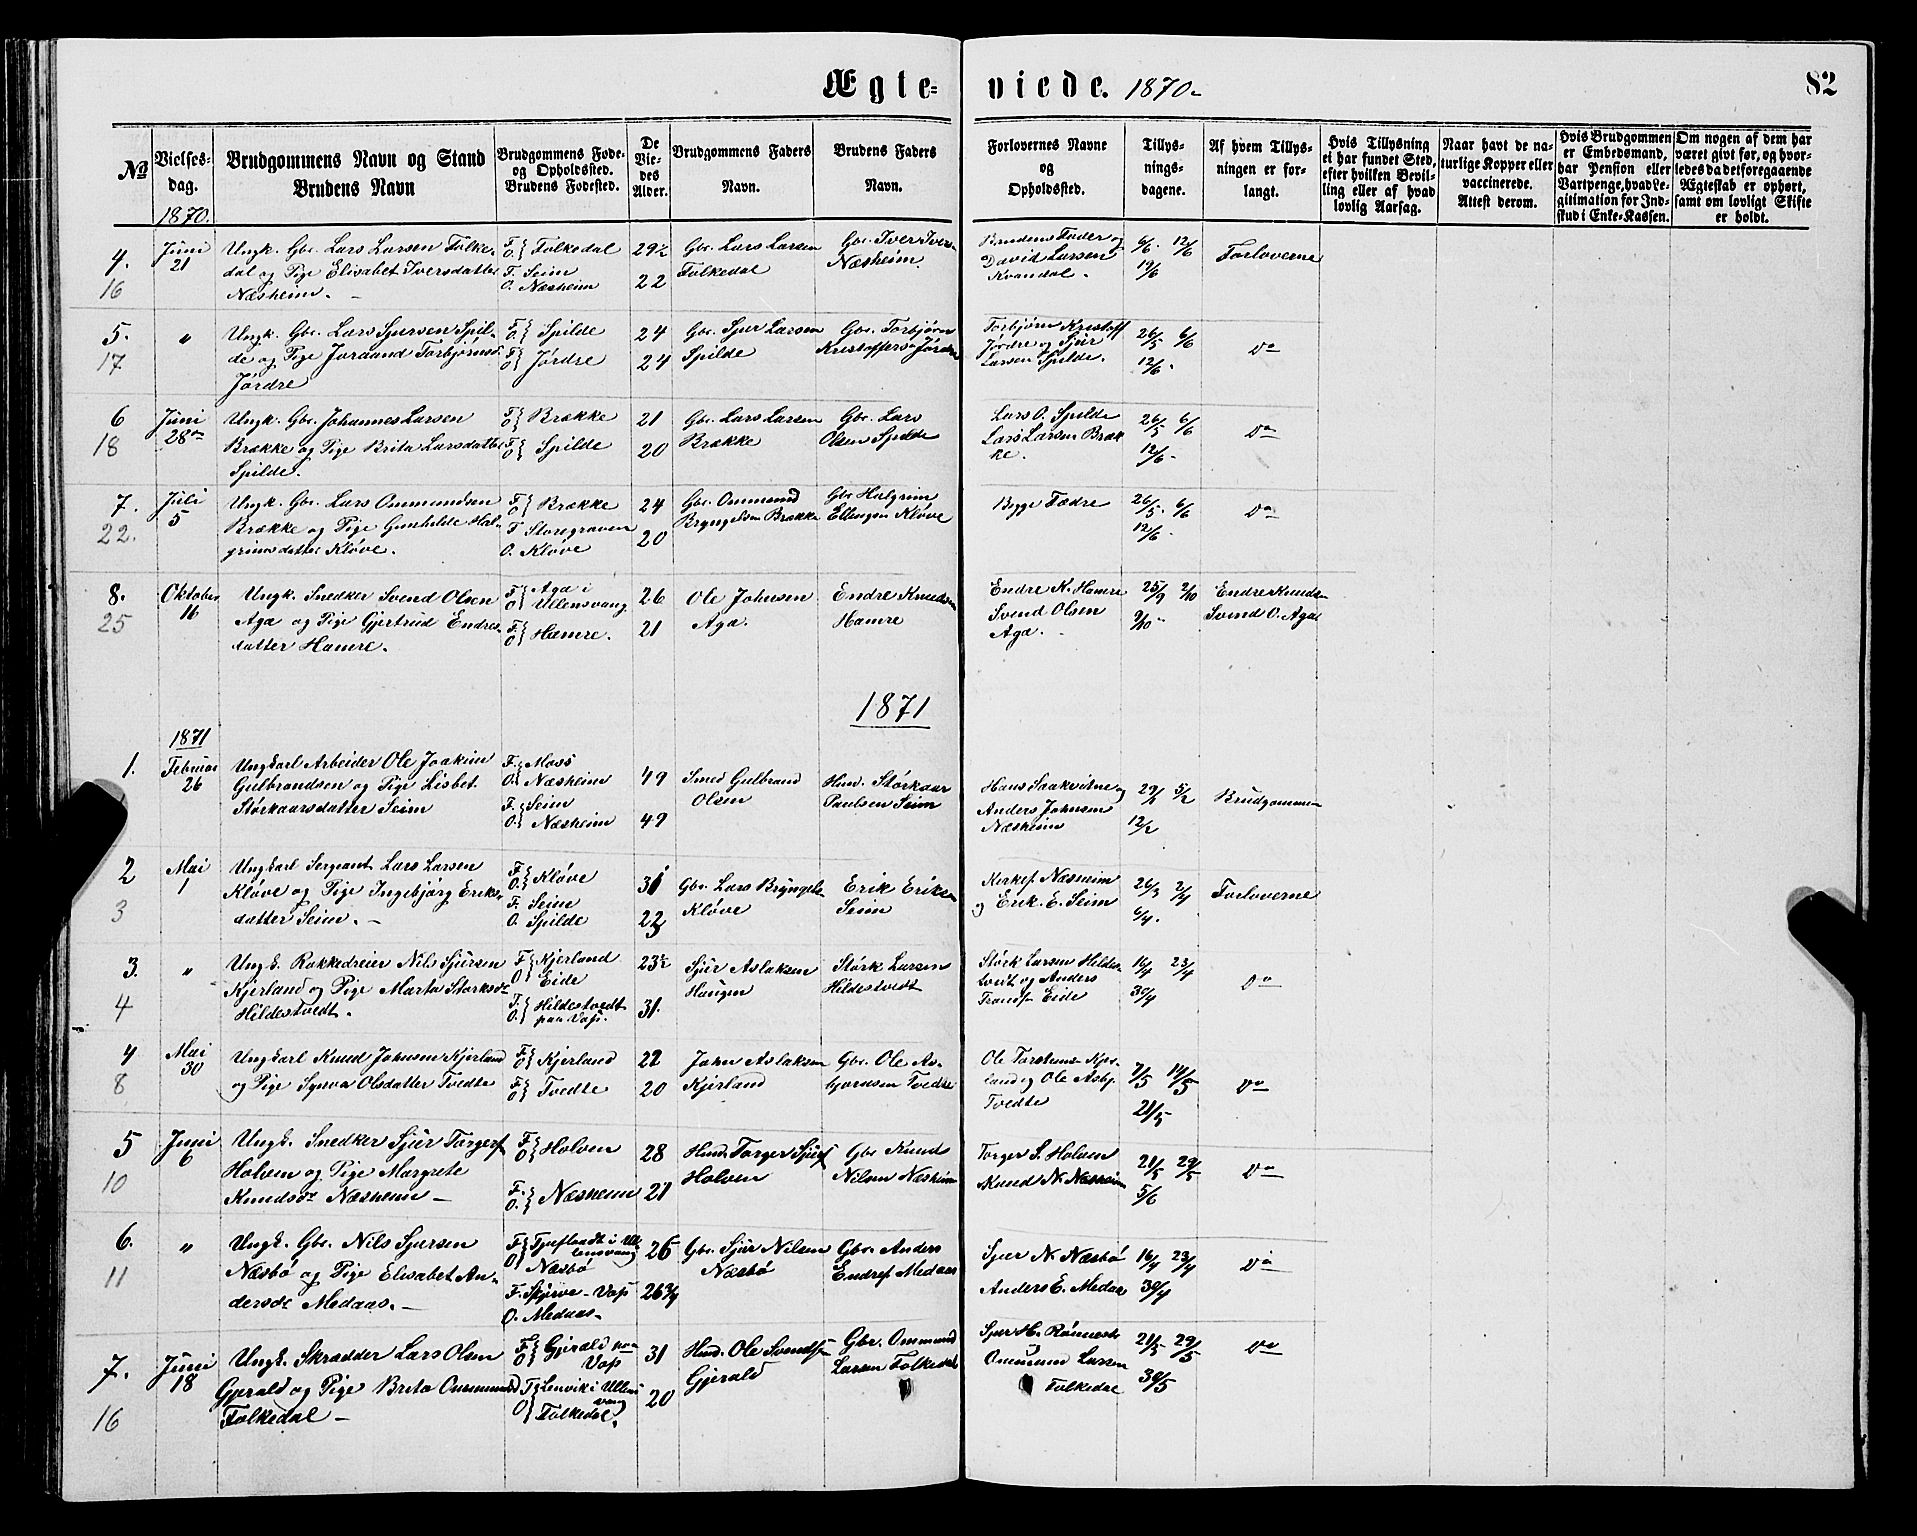 Ægte=
viede. 1870.
82
No
Vielses-
dag.
1870.
Brudgommens Navn og Stand
Brudens Navn
Brudgommens Føde-
og Opholdssted.
Brudens Fødested.
De
Vie-
des
Alder.
Brudgommens Faders
Navn.
Brudens Faders
Navn.
Forlovernes Navne
og
Opholdssted.
Tillys-
nings-
dagene.
Af hvem Tillys-
ningen er for-
langt.
Hvis Tillysning
ei har fundet Sted,
efter hvilken Bevil-
ling eller af hvad
lovlig Aarsag.
Naar havt de na-
turlige Kopper eller
vaccinerede.
Attest derom.
Hvis Brudgommen
er Embedsmand,
har Pension eller
Vartpenge, hvad Le-
gitimation for Ind-
skud i Enke-Kassen.
Om nogen af dem har
været givt før, og hvor-
ledes da det foregaaende
Ægteskab er ophørt,
samt om lovligt Skifte
er holdt.
4.
16
Juni
21
Ungk. Gbr. Lars Larsen Folke-
dal og Pige Elisabet Iversdatter
Næsheim. –
F. O. Folkedal
F. Seim
O. Næsheim
29½
22
Gbr. Lars Larsen
Folkedal
Gbr. Iver Ivers.
Næsheim.
Brudens Fader og
David Larsen
Kvandal.
6/6. 12/6
19/6
Forloverne
5.
17
"
Ungk. Gbr. Lars Sjursen Spil-
de og Pige Joraand Torbjørnsd.
Jördre
F. O. Spilde
F. O. Jördre
24
24
Gbr. Sjur Larsen
Spilde
Gbr. Torbjörn
Kristoffers. Jördre
Torbjörn Kristoff
Jördre og Sjur
Larsen Spilde.
26/5 6/6
12/6.
Do
6
18
Juni
28de
Ungk. Gbr. Johannes Larsen
Brække og Pige Brita Larsdatter
Spilde.
F. O. Brække
F. O. Spilde
21
20
Gbr. Lars Larsen
Brække
Gbr. Lars
Olsen Spilde
Lars O. Spilde
Lars Larsen Bræk
ke.
26/5 6/6
12/6.
Do
7.
22.
Juli
5
Ungk. Gbr. Lars Ommundsen
Brække og Pige Gunhilde Hal-
grimsdatter Klöve.
F. O. Brække
F. Storegraven
O. Klöve
24
20
Gbr. Ommund
Bryngelsen Brække
Gbr. Halgrim
Ellingsen Klöve
Begge Fædre
26/5. 6/6
12/6.
Do
8.
25
Oktober
16
Ungk. Snedker Svend Olsen
Aga og Pige Gjertrud Endres-
datter Hamre.
F. O. Aga i
Ullensvang
F. O. Hamre.
26
21
Ole Johnsen
Aga.
Endre Knudsen
Hamre
Endre K. Hamre
Svend Olsen
Aga.
25/9 2/10
9/10
Endre Knuds.
Svend O. Aga
1871
1871
1.
Februar
26
Ungkarl Arbeider Ole Joakim
Gulbrandsen og Pige Lisbet
Störkaarsdatter Seim
F. Moss
O. Næsheim
F. Seim
O. Næsheim
49
49
Smed Gulbrand
Olsen
Hmd. Störkaar
Paulsen Seim
Hans Saakvitne og
Anders Johnsen
Næsheim
29/1 5/2
12/2
Brudgommen
2
3
Mai
1
Ungkarl Sergeant Lars Larsen
Klöve og Pige Ingebjörg Eriks-
datter Seim. –
F. O. Klöve
F. Seim
O. Spilde
31
Gbr. Lars Bryngels.
Klöve
Erik Eriksen
Seim
Næsheim
og Erik. E. Seim
26/3 2/4
6/4.
Forloverne
3.
4
"
Ungk. Rokkedreier Nils Sjursen
Kjerland og Pige Marta Störksdr
Hildestvedt.
F. Kjerland
O. Eide
F. O. Hildestvedt
paa Voss.
23½
31.
Sjur Aslaksen
Haugen
Störk Larsen
Hildestvedt
Störk Larsen Hildes-
tvedt og Anders
Eide
16/4 23/4
30/4
Do
4
8
Mai
30
Ungkarl Knud Johnsen Kjerland
og Pige Synva Olsdatter Tvedte
F. O. Kjerland
F. O. Tvedte
22
20
John Aslaksen
Kjerland
Gbr. Ole As-
bjørnsen Tvedte
Ole Torstens. Kjer-
land og Ole Asbj.
Tvedte
7/5 14/5
21/5
Do
5
10
Juni
6
Ungk. Snedker Sjur Torgers.
Holven og Pige Margrete
Knudsdr Næsheim –
F. O. Holven
F. O. Næsheim
28
21
Hmd. Torger Sjurs.
Holven
Gbr. Knud
Nilsen Næsheim
Torger S. Holven
Knud N. Næsheim
21/5 29/5
5/6
Do
6.
11
"
Ungk. Gbr. Nils Sjursen
Næsbö og Pige Elisabet An-
dersdr Medaas. –
i Ul-
lensvang
O Næsbö
F. Skjerve – Voss
O. Medaas.
26
26¾
Gbr. Sjur Nilsen
Næsbö
Gbr. Anders
Endres. Medaas
Sjur N. Næsbö
Anders E. Medaas
16/4 23/4
30/4
Do
7.
16
Juni
18
Ungk. Skrædder Lars Olsen
Gjerald og Pige Brita Ommunds
Folkedal –
F. O. Gjerald paa
Voss
F. Lenvik i Ullens-
vang
O. Folkedal.
31
20
Hmd. Ole Svends.
Gjerald
Gbr. Ommund
Larsen Folkedal
Sjur H. Rönnest.
Ommund Larsen
Folkedal
21/5 29/5
30/5
Do